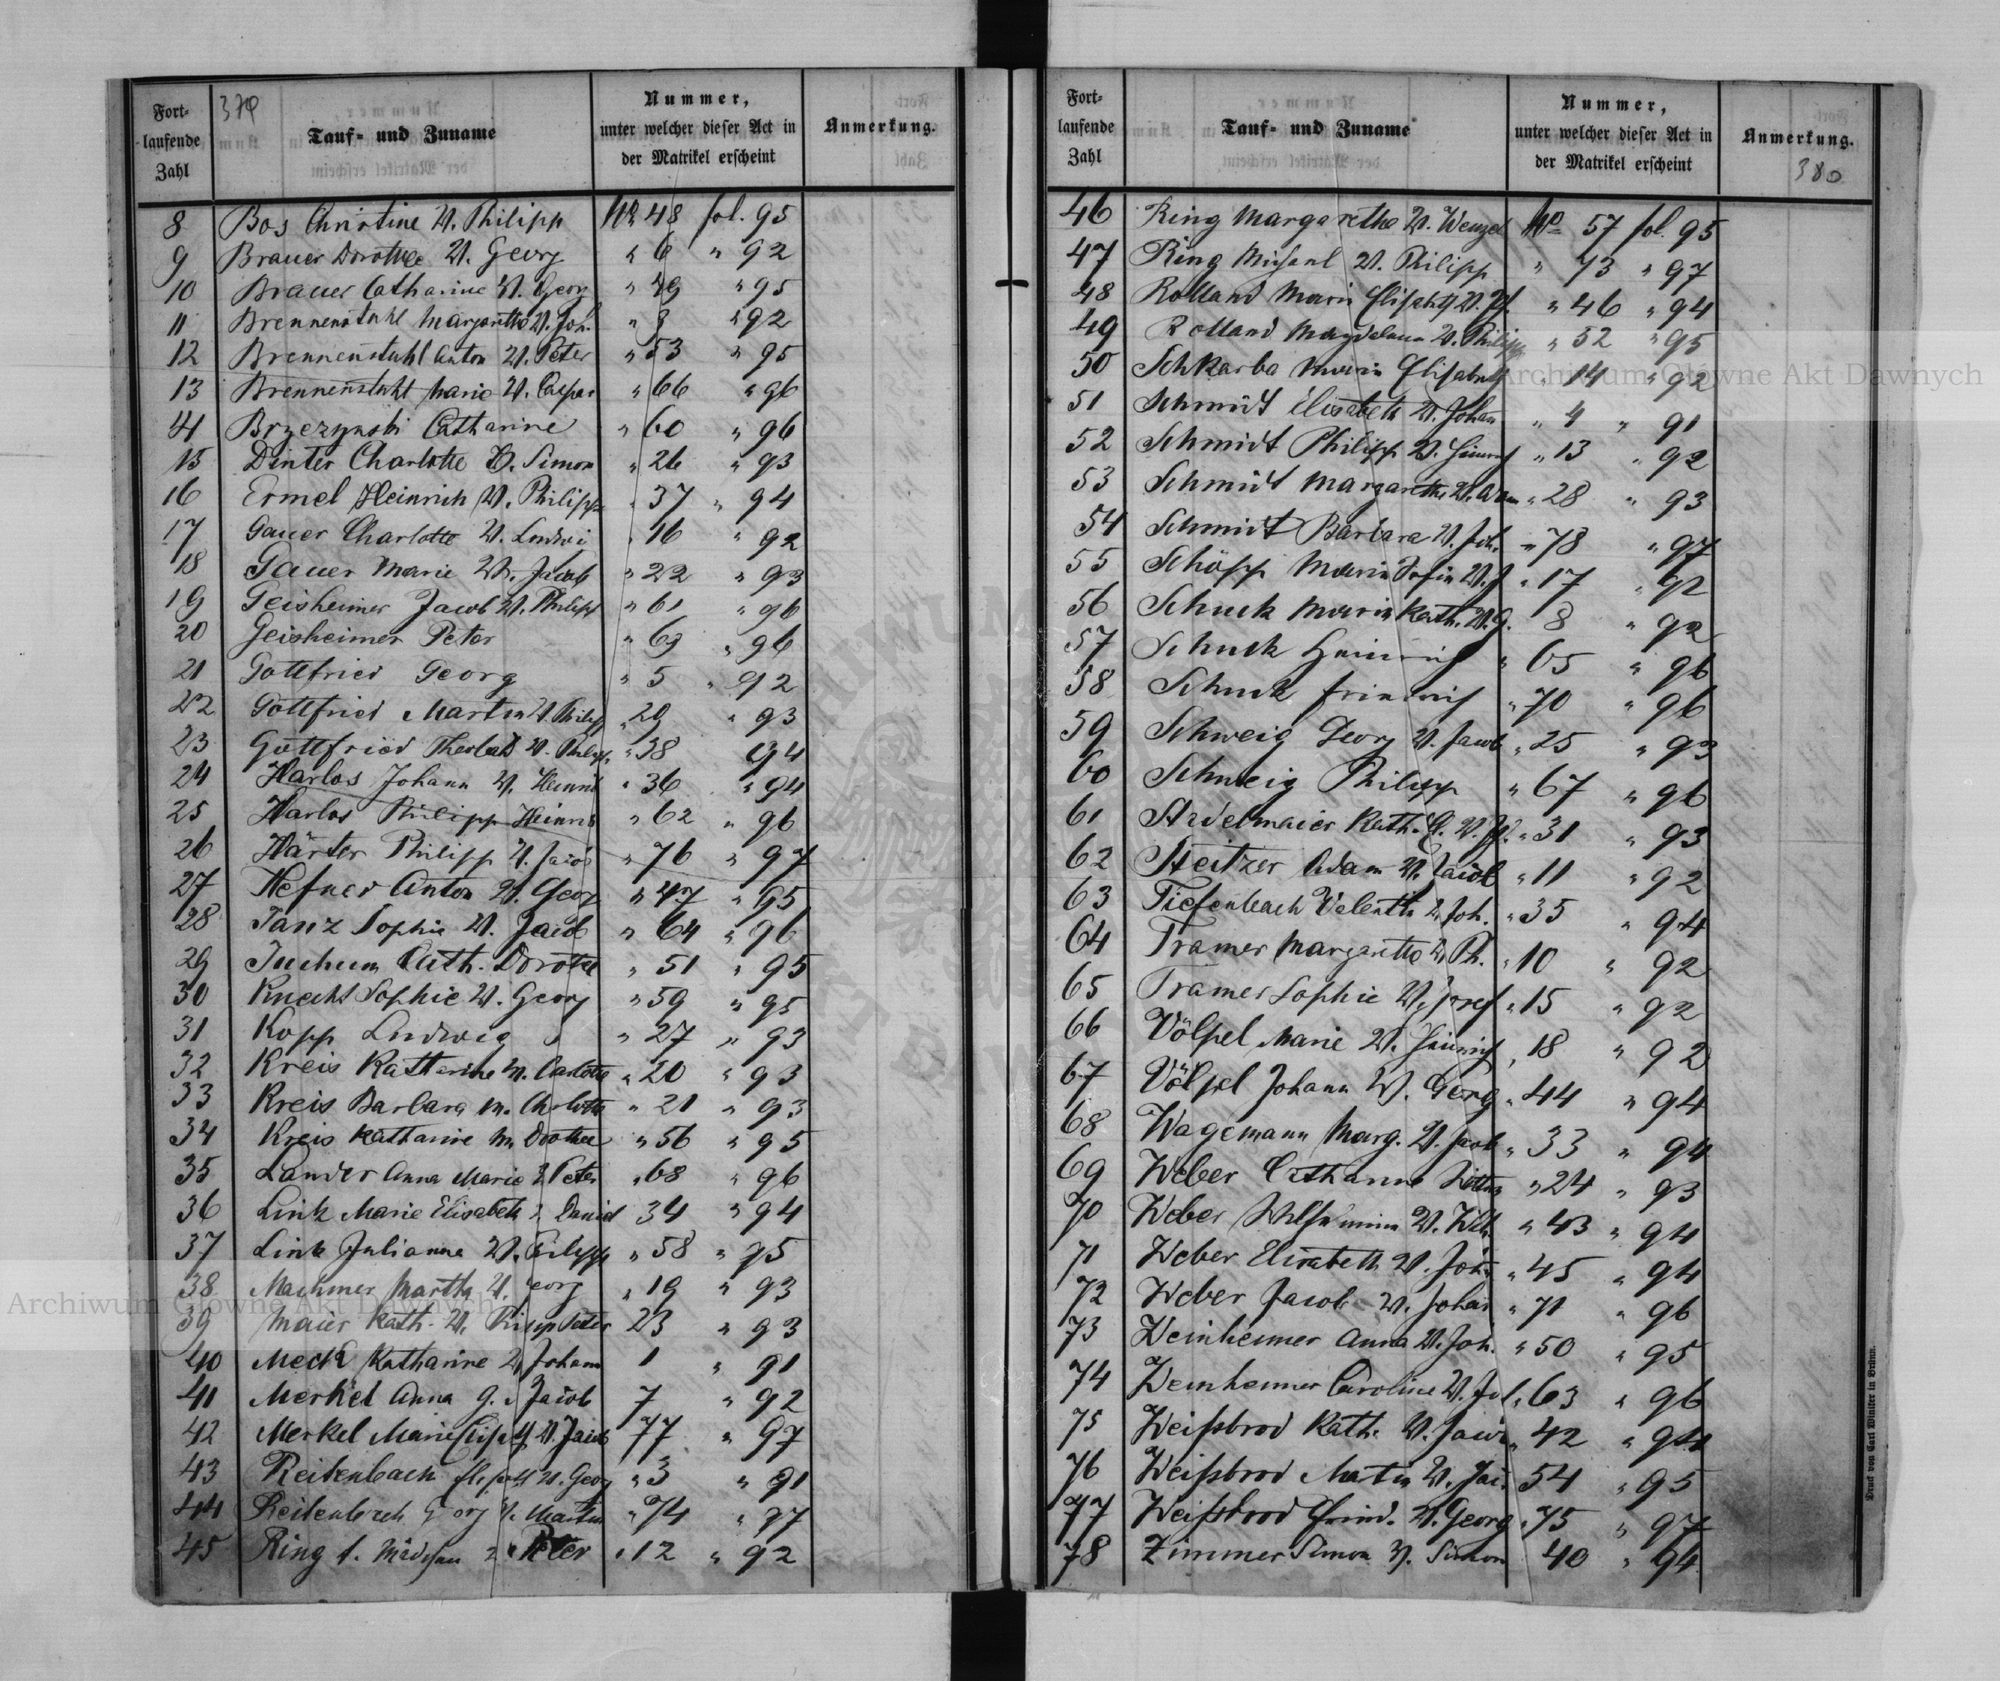 379
Fort-
laufende
Zahl
Tauf- und Zuname
Nummer,
unter welcher dieser Act in
der Matrikel erscheint
Anmerkung.
8 Bos Christine V. Philipp No 48 fol. 95
9 Brauer Dorothee V. Georg " 6 " 92
10 Brauer Catharine V. Georg " 49 " 95
11 Brennenstuhl Margaretha V. Joh. " " 92
12 Brennenstuhl Anton V. Peter " 53 " 95
13 Brennenstuhl Marie V. Caspar " 66 " 96
14 Brzezynski Catharine " 60 " 96
15 Dinter Charlotte V. Simon " 26 " 93
16 Ermel Heinrich V. Philipp " 37 " 94
17 Gauer Charlotte V. Ludwi " 16 " 92
18 Gauer Marie V. Jacob " 22 " 93
19 Geisheimer Jacob V. Philipp " 61 " 96
20 Geisheimer Peter " 69 " 96
21 Gottfried Georg " 5 " 92
22 Gottfried Martin V. Philip " 29 " 93
23 Gottfried V. Philipp " 38 94
24 Harlos Johann V. Heinri " 36 " 94
25 Harlos Philipp Heinri " 62 " 96
26 Härter Philipp V. Jacob " 76 " 97
27 Hefner Anton V. Georg " 47 " 95
28 Janz Sophie V. Jacob " 64 " 96
29 Juchum Cath. Dorothe " 51 " 95
30 Knecht Sophie V. Georg " 59 " 95
31 Kopp Ludwig " 27 " 93
32 Kreis Katharine M. Charlotte " 20 " 93
33 Kreis Barbara M. Charlotte " 21 " 93
34 Kreis Katharine M. Dorothee " 56 " 95
35 Lander Anna Marie V. Peter " 68 " 96
36 Link Marie Elisabeth V. Daniel 34 " 94
37 Link Julianna V. Filipp " 58 " 95
38 Machmer Martha V. Georg " 19 " 93
39 Maier Kath. V. Peter 23 " 93
40 Meck Katharine V. Johann 1 " 91
41 Merkel Anna G. V. Jacob 7 " 92
42 Merkel Marie Elisabeth V. Jacob 77 " 97
43 Reitenbach Elisabeth V. Georg " 3 " 91
44 Reitenbach Georg V. Martin " 74 " 97
45 Ring t. Mädchen V. Peter " 12 " 92
Fort-
laufende
Zahl
Tauf- und Zuname
Nummer,
unter welcher dieser Act in
der Matrikel erscheint
Anmerkung.
380
46 Ring Margaretha V. Wenzel No 57 fol. 95
47 Ring Michael V. Philipp " 73 " 97
48 Rolland Maria Elisabeth V. " 46 " 94
49 Rolland Magdalena V. Philipp " 52 " 95
50 Schkarba Maria Elisabeth " 14 " 92
51 Schmidt Elisabeth V. Johan " 4 " 91
52 Schmidt Philipp V. Heinrich " 13 " 92
53 Schmidt Margarethe V. Adam " 28 " 93
54 Schmidt Barbara V. Joh. " 78 " 97
55 Schöpp Maria Sofia V. J " 17 " 92
56 Schuck Maria Kath. V. G. 8 " 92
57 Schuck Heinrich " 65 " 96
58 Schuck Friedrich " 70 " 96
59 Schweig Georg V. Jacob " 25 " 93
60 Schweig Philipp " 67 " 96
61 Kath. E. V. " 31 " 93
62 Steitzer Adam V. Jacob " 11 " 92
63 Tiefenbach Valentin V. Joh. " 35 " 94
64 Tramer Margaretha V. Ph. " 10 " 92
65 Tramer Sophie V. Josef " 15 " 92
66 Völpel Marie V. Heinrich " 18 " 92
67 Völpel Johann V. Georg " 44 " 94
68 Wagemann Marg. V. Jacob " 33 " 94
69 Weber Catharine " 24 " 93
70 Weber Wilhelmina V. Wilh " 43 " 94
71 Weber Elisabeth V. Joh " 45 " 94
72 Weber Jacob V. Johan " 71 " 96
73 Weinheimer Anna V. Joh. " 50 " 95
74 Weinheimer Caroline V. " 63 " 96
75 Weißbrod Kath. V. Jacob " 42 " 94
76 Weißbrod Martin V. Jac. 54 " 95
77 Weißbrod Fried. V. Georg " 75 " 97
78 Zimmer Simon V. Simon 40 " 94
Druck von Carl Winiker in Brünn.
Archiwum Główne Akt Dawnych
Archiwum Główne Akt Dawnych